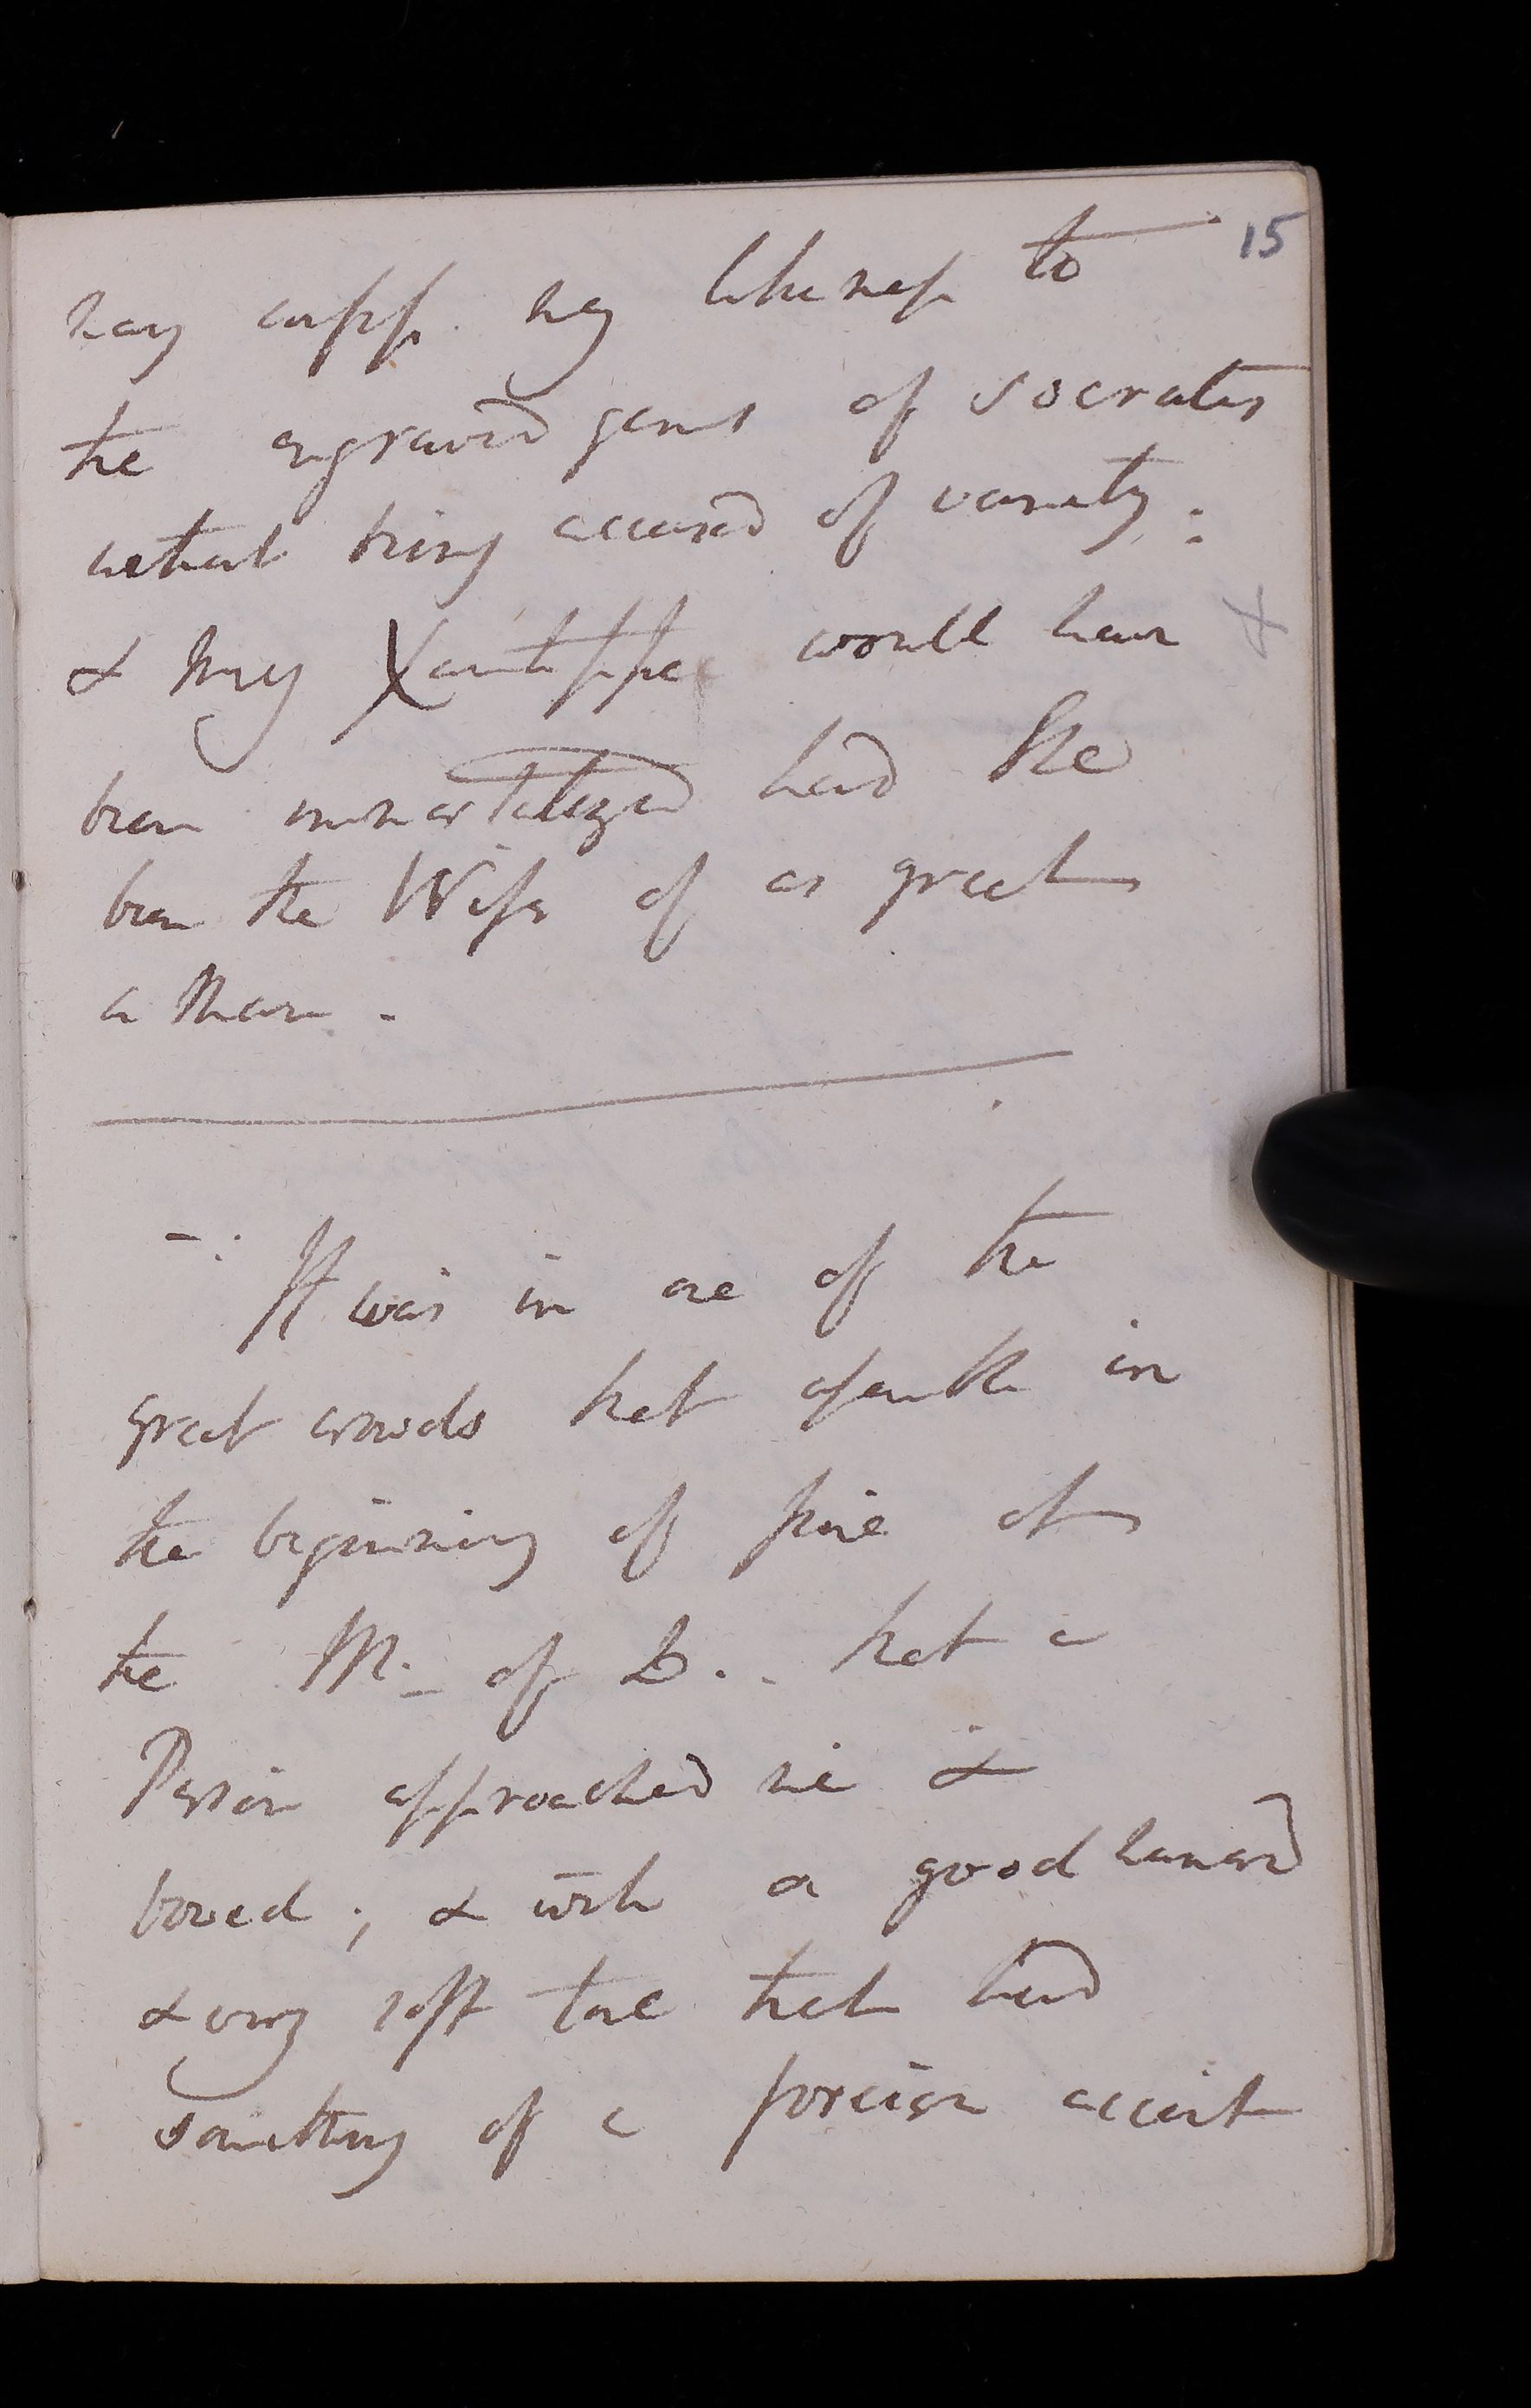 15
may confess my likeness to
the engraved gems of Socrates
without being accused of vanity:
& my Xantippe would have
been immortalized had she
been the Wife of as great
a Man.
-: It was in one of the
great crowds that assemble in
the beginning of June at
the M. of L.. that a
Person approached me &
bowed; & with a good humored
& very soft tone that had
something of a foreign accent